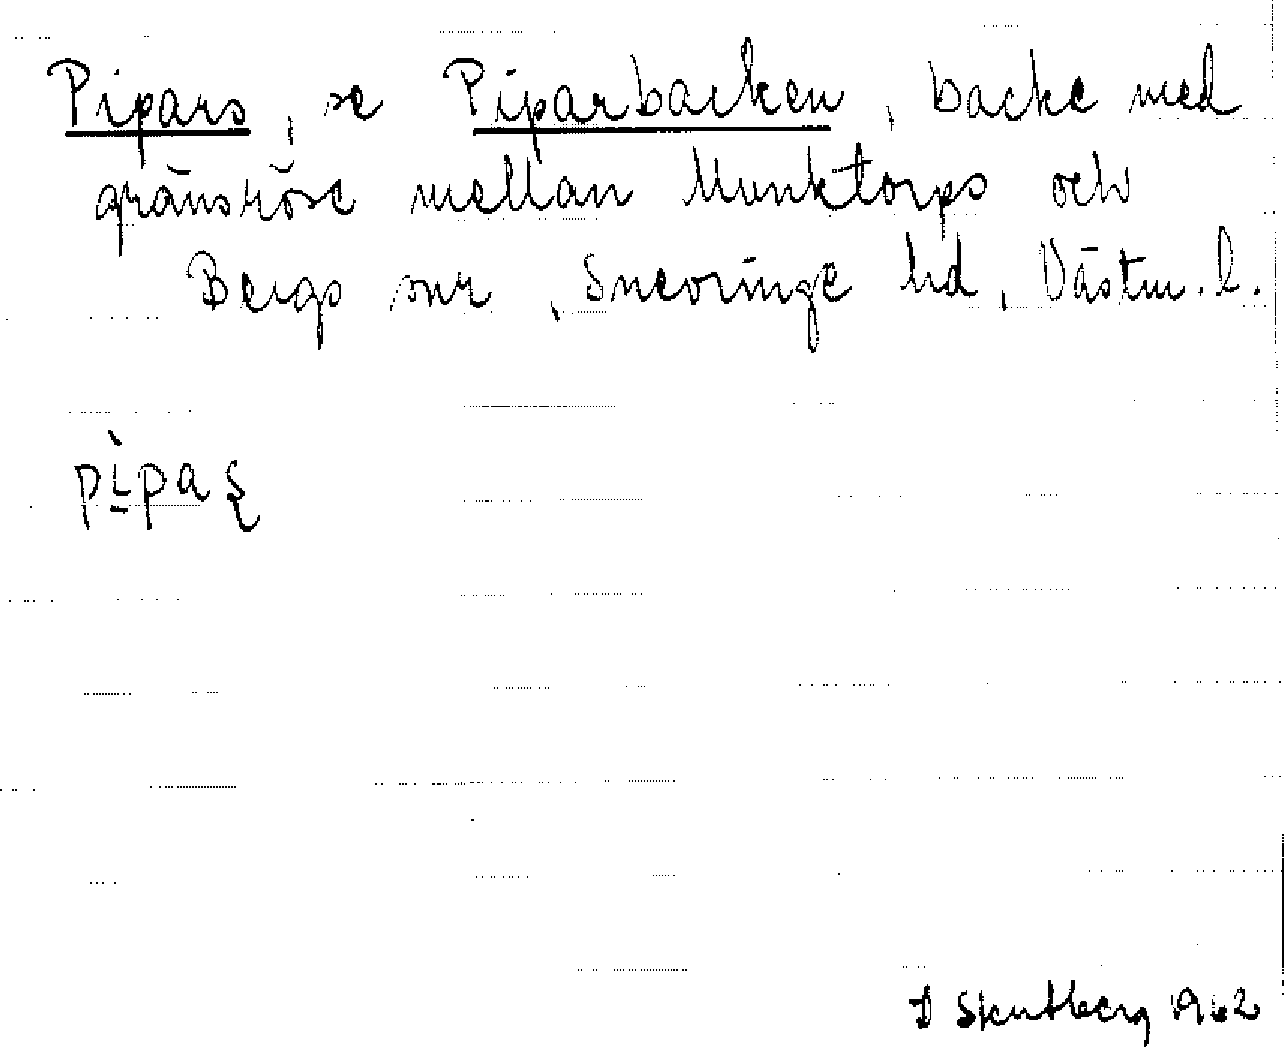 Pipars, se Piparbacken, backe med
gränsröse mellan Munktorps och
Bergs snr, Snevringe hd, Västm. l.
pìpaʂ
Skutberg 1962